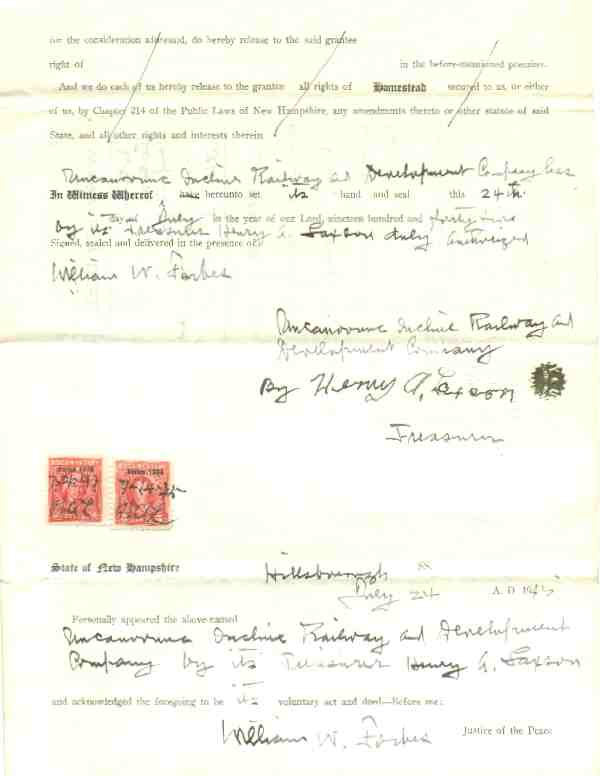 for the consideration aforesaid, do hereby release to the said grantee
right of in the before-mentioned premises.
And we do each of us hereby release to the grantee all rights of Homestead secured to us, or either
of us, by Chapter 214 of the Public Laws of New Hampshire, any amendments thereto or other statute of said
State, and all other rights and interests therein
Uncanoonuc Incline Railway and Development Company has
In Witness Whereof have hereunto set its hand and seal this 24th
day of July in the year of our Lord, nineteen hundred and forty
by its Treasurer Henry A. Saxson duly authorized
Signed, sealed and delivered in the presence of:
William W. Forbes
Uncanoonuc Incline Railway and
Development Company
By Henry A. Saxson
Treasurer
DOCUMENTARY
State of New Hampshire
Hillsborough SS.
July 24 A. D. 19
Personally appeared the above-named
Uncanoonuc Incline Railway and Development
Company by its Treasurer Henry A. Saxson
and acknowledged the foregoing to be its voluntary act and deed—Before me:
William W. Forbes Justice of the Peace